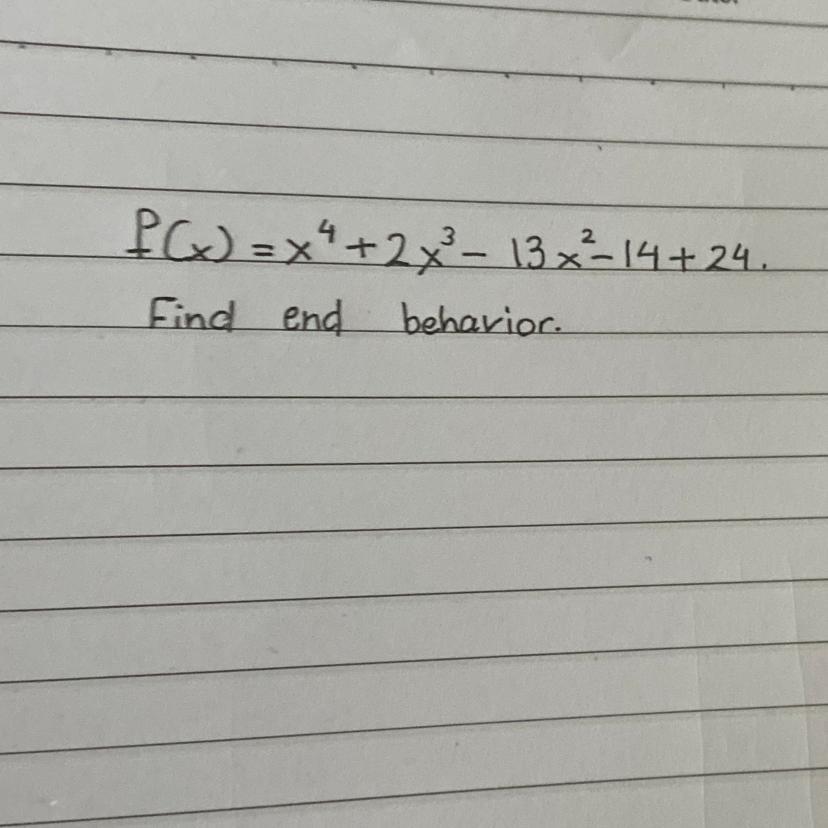 f(x) = x⁴ + 2x³ - 13x² - 14 + 24.
Find end behavior.